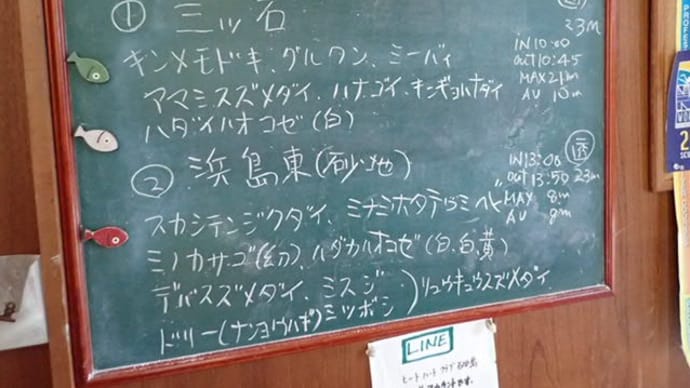 ① 三ッ石
23m
キンメモドキ、グルクン、ミーバイ
IN 10:00
OUT 10:45
アマミスズメダイ、ハナゴイ、キンギョハナダイ
MAX 21m
AV 10m
ハダイハオコゼ(白)
② 浜島東(砂地)
透
IN 13:00
OUT 13:50
23m
スカシテンジクダイ、ミナミホタテウミヘビ
MAX 8m
AV 8m
ミノカサゴ(幼)、ハダカハオコゼ(白、白、黄)
デバスズメダイ、ミスジ
リュウキュウスズメダイ
ドリー(ナンヨウハギ)ミツボシ
LINE